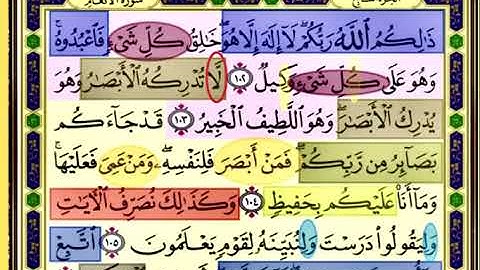 ذَٰلِكُمُ ٱللَّهُ رَبُّكُمْ ۖ لَآ إِلَٰهَ إِلَّا هُوَ ۖ خَٰلِقُ كُلِّ شَىْءٍ فَٱعْبُدُوهُ ۚ
وَهُوَ عَلَىٰ كُلِّ شَىْءٍ وَكِيلٌ ١٠٢ لَّا تُدْرِكُهُ ٱلْأَبْصَٰرُ وَهُوَ
يُدْرِكُ ٱلْأَبْصَٰرَ ۖ وَهُوَ ٱللَّطِيفُ ٱلْخَبِيرُ ١٠٣ قَدْ جَآءَكُم
بَصَآئِرُ مِن رَّبِّكُمْ ۖ فَمَنْ أَبْصَرَ فَلِنَفْسِهِۦ ۖ وَمَنْ عَمِىَ فَعَلَيْهَا ۚ
وَمَآ أَنَا۠ عَلَيْكُم بِحَفِيظٍ ١٠٤ وَكَذَٰلِكَ نُصَرِّفُ ٱلْءَايَٰتِ
وَلِيَقُولُوا۟ دَرَسْتَ وَلِنُبَيِّنَهُۥ لِقَوْمٍ يَعْلَمُونَ ١٠٥ ٱتَّبِعْ